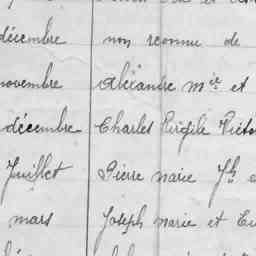 décembre non reconnu de
novembre Alexandre m^ie et
décembre Charles Virgile Victor
Juillet Pierre marie Jh
mars Joseph marie et Eu